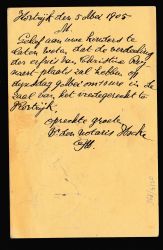 Kortrijk den 5 Mei 1905
M.
Gelief aan uwe kinders te
laten weten, dat de verdeeling
der erfenis van Christine
plaats zal hebben op
dysendag 9 Mei om 1 ure in de
zaal van het vredegerecht te
Kortrijk.
oprechte groete
notaris